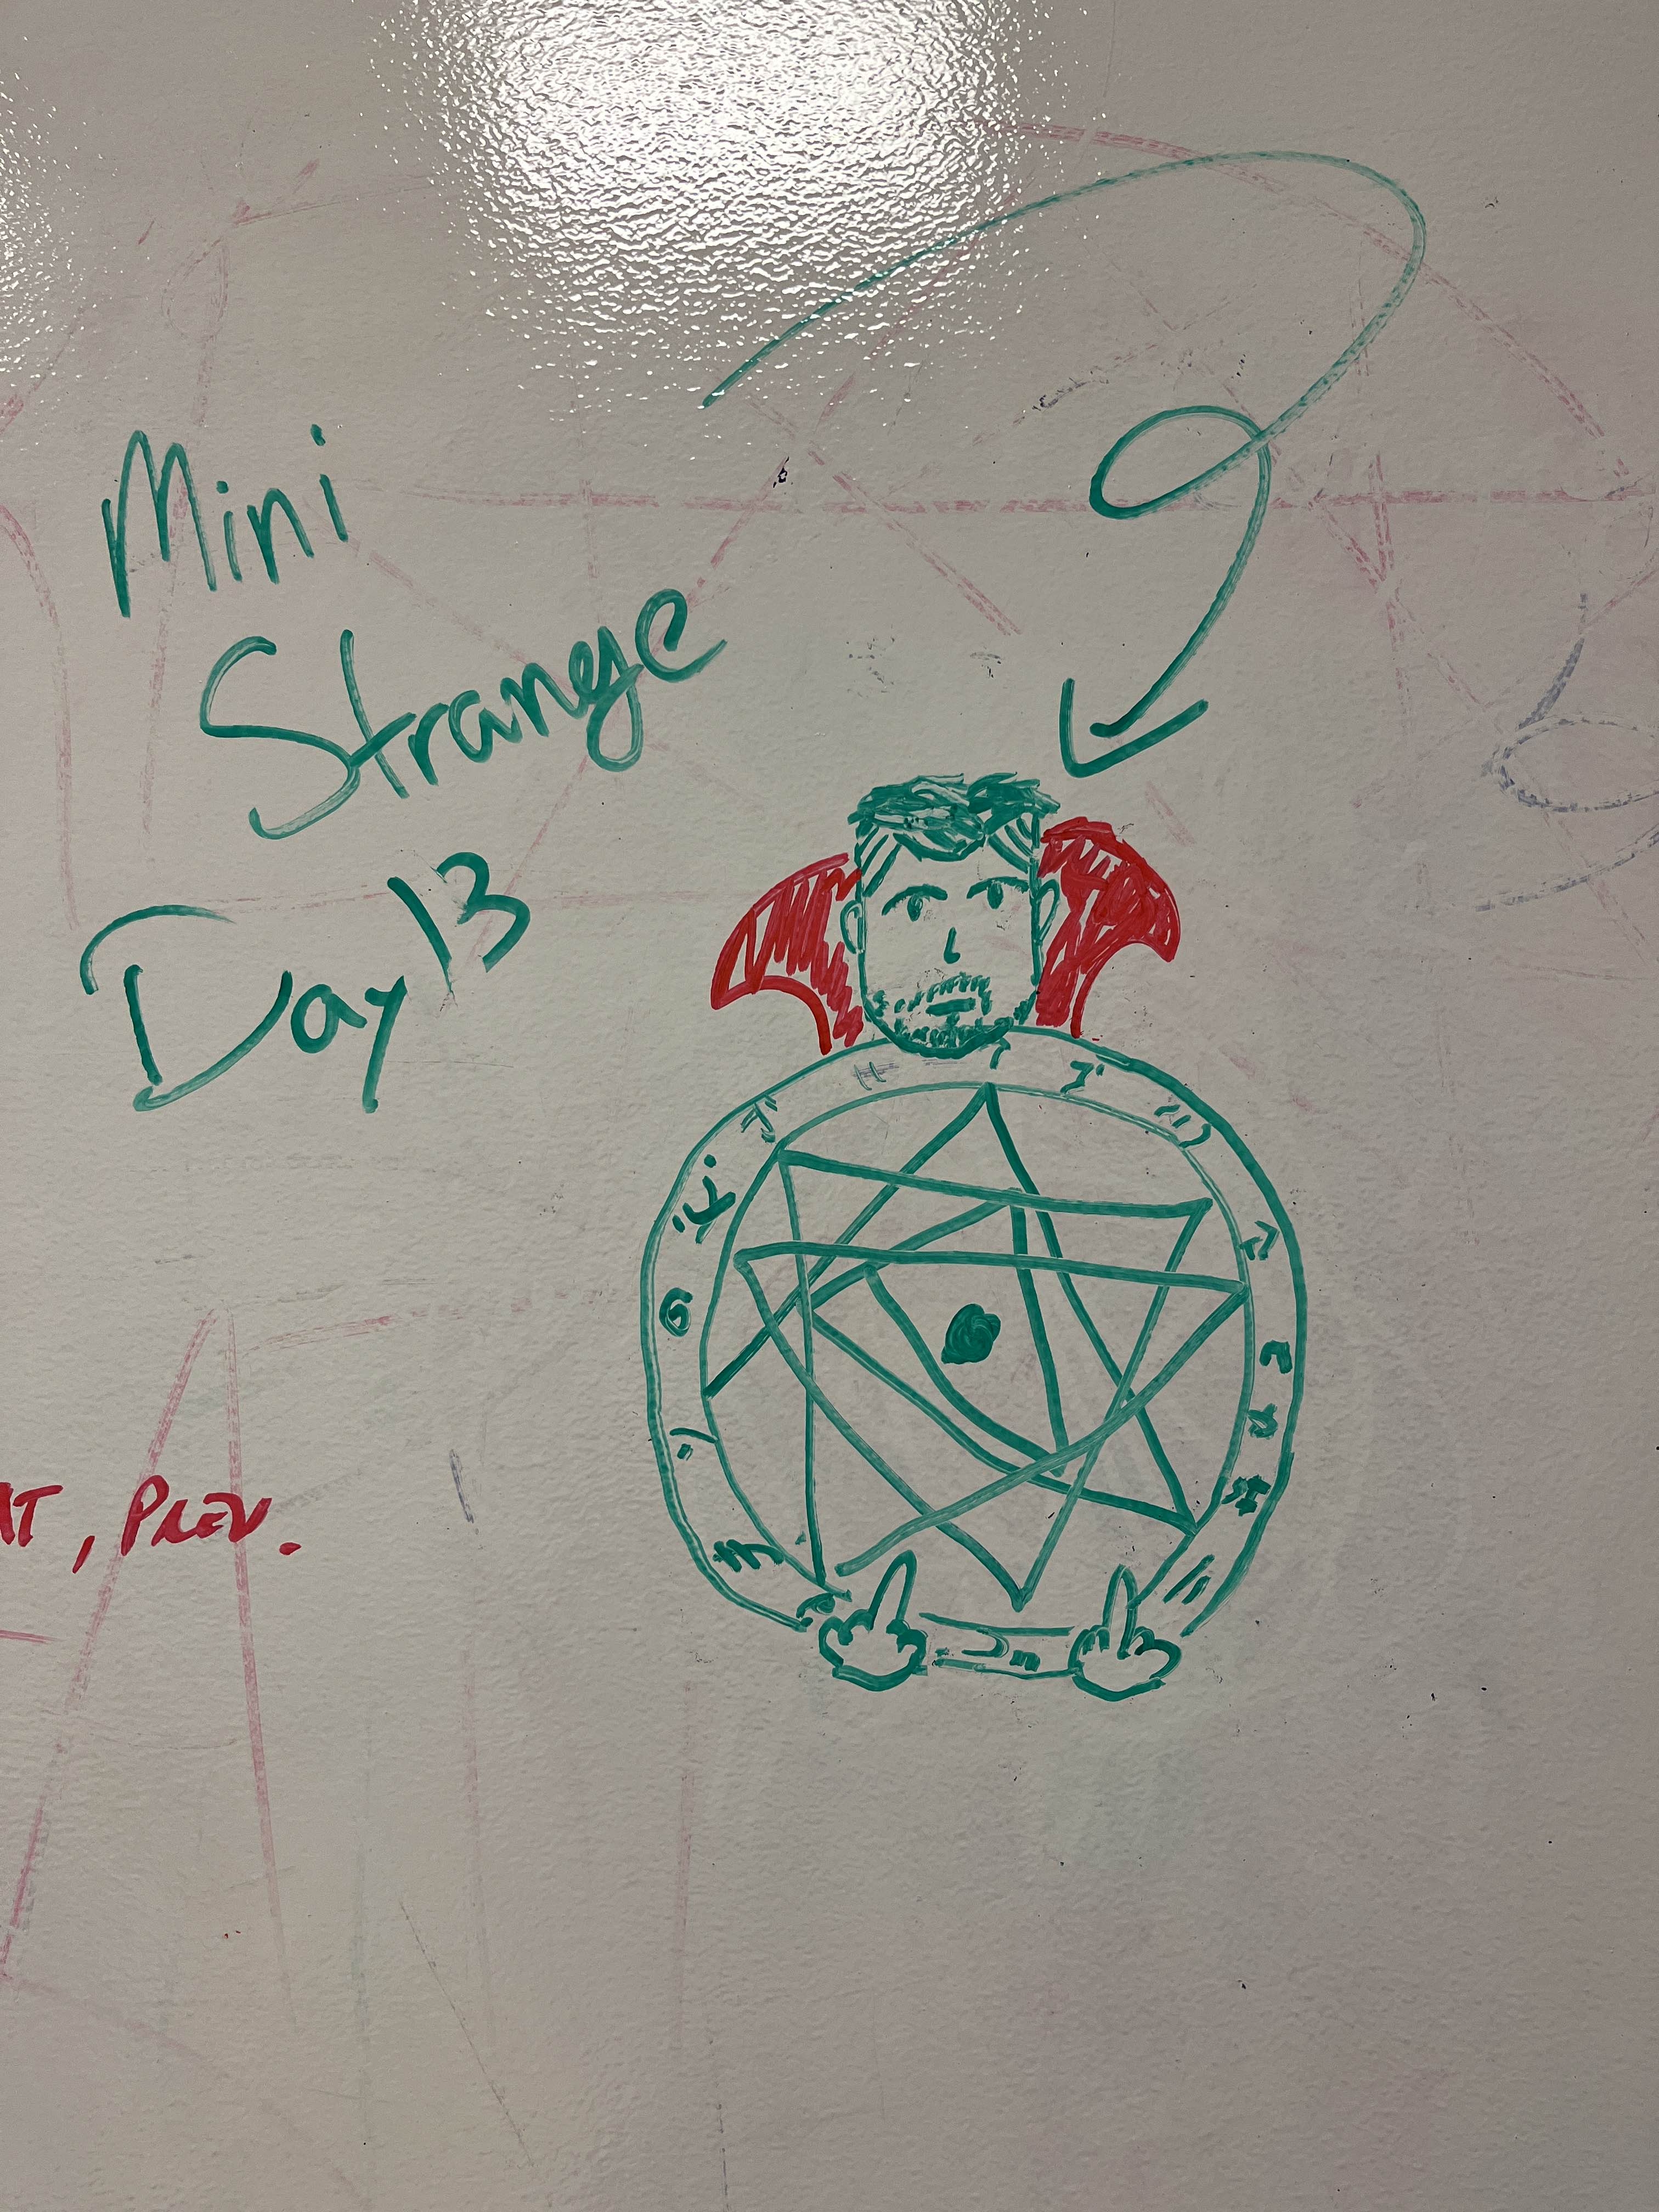 Mini
Strange
Day 13
, PREV.